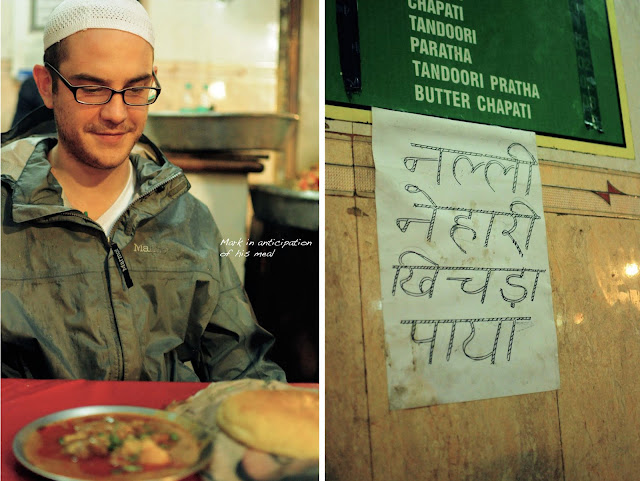 Mark in anticipation
of his meal
Marmot
CHAPATI
TANDOORI
PARATHA
TANDOORI PRATHA
BUTTER CHAPATI
नल्ली
नेहारी
खिचड़ा
पाया